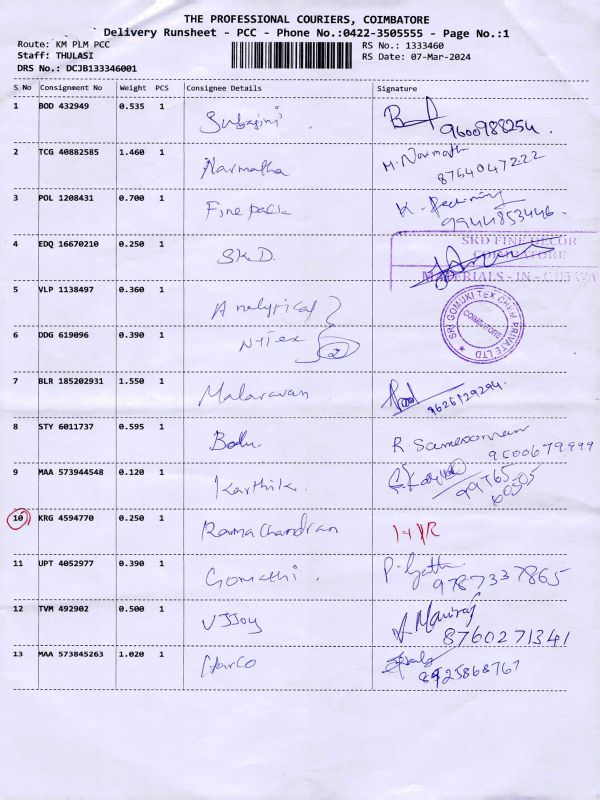 THE PROFESSIONAL COURIERS, COIMBATORE
Delivery Runsheet - PCC - Phone No.:0422-3505555 - Page No.:1
Route: KM PLM PCC
Staff: THULASI
DRS No.: DCJB133346001
RS No.: 1333460
RS Date: 07-Mar-2024
S No Consignment No Weight PCS Consignee Details Signature
1 BOD 432949 0.535 1 Subajini
9600988254.
2 TCG 40882585 1.460 1 Narmatha M. Narmatha
8764047222
3 POL 1208431 0.700 1 Fine pack K.
9944853446.
4 EDQ 16670210 0.250 1 S.K.D.
SKD FINE DECOR
COIMBATORE
MATERIALS - IN -
5 VLP 1138497 0.360 1 Analytical
SRI GOMUKI TEX CHEM PRIVATE LTD
COIMBATORE
6 DDG 619096 0.390 1 N-Tex 2
7 BLR 185202931 1.550 1 Malaravan
9626129294.
8 STY 6011737 0.595 1 Babu. R.
9500679999
9 MAA 573944548 0.120 1 Karthik.
99765
60505
10 KRG 4594770 0.250 1 Rama Chandran
11 UPT 4052977 0.390 1 Gomathi. P.
9787337865
12 TVM 492902 0.500 1 VJJoy
8760271341
13 MAA 573845263 1.020 1 Harco
8925868767